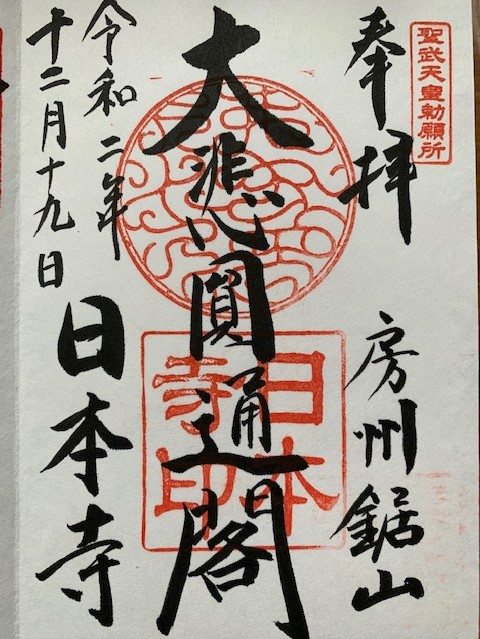 聖武天皇勅願所
奉拝
房州鋸山
大悲圓通閣
日本寺印
令和二年
十二月十九日
日本寺